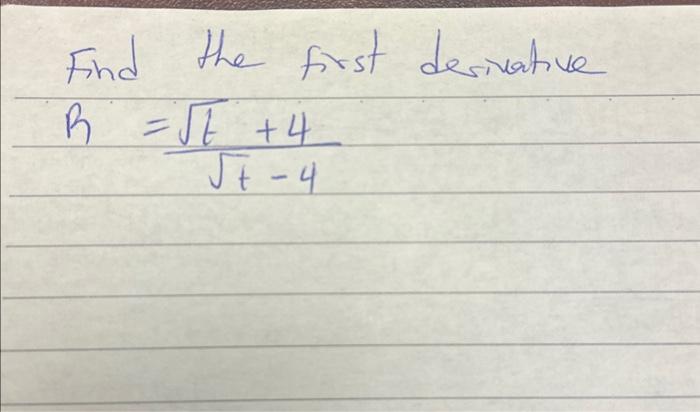 Find the first derivative
R = √t + 4
√t - 4